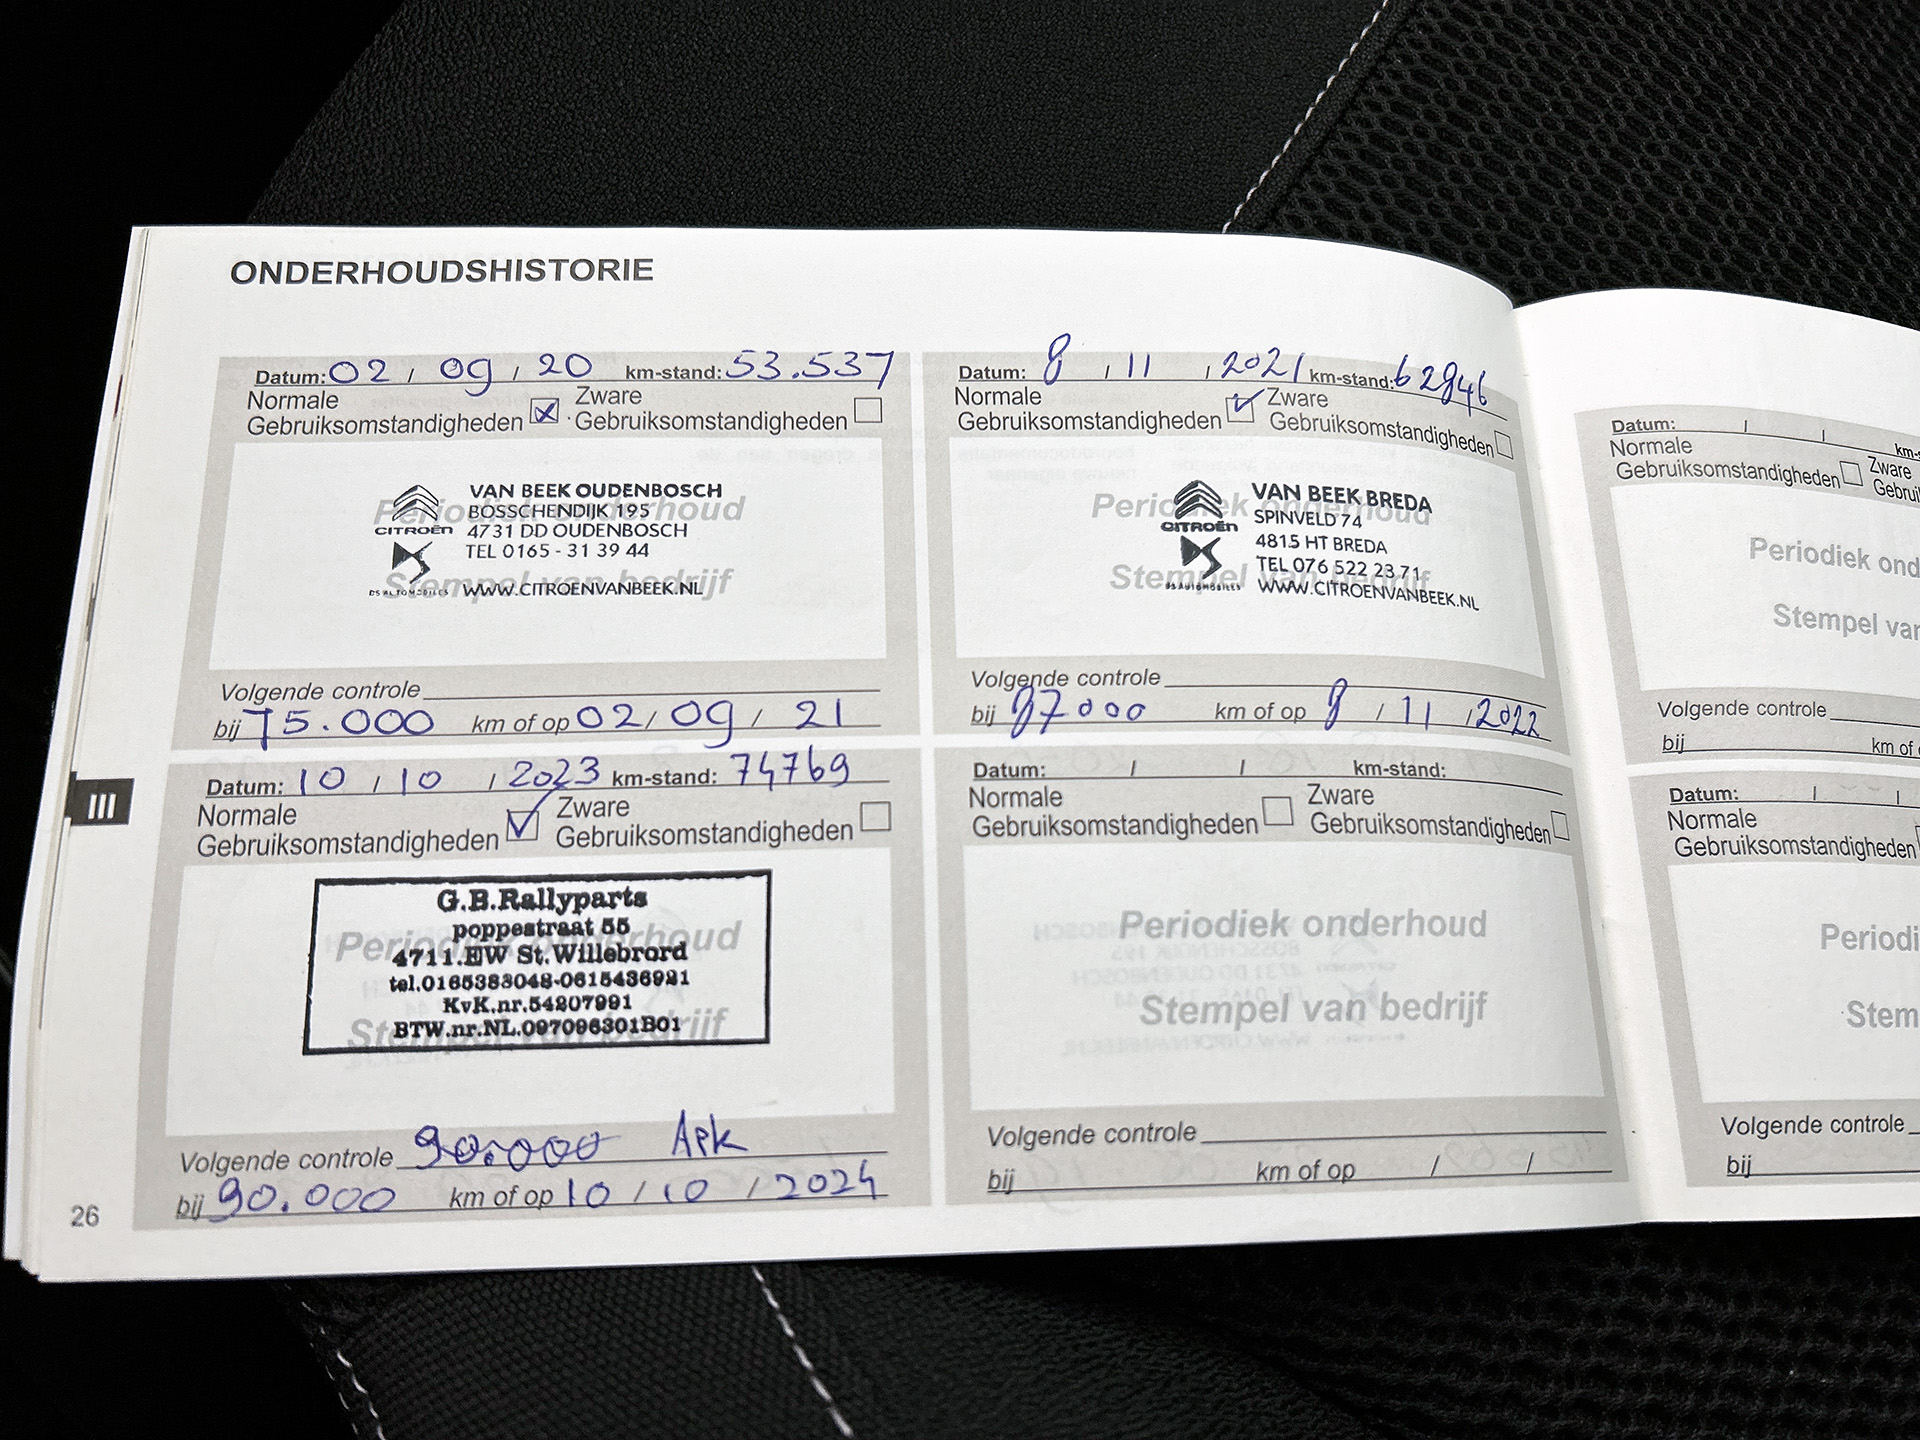 ONDERHOUDSHISTORIE
Datum: 02 / 09 / 20 km-stand: 53.537
Normale Gebruiksomstandigheden Zware Gebruiksomstandigheden
Periodiek onderhoud
Stempel van bedrijf
VAN BEEK OUDENBOSCH
BOSSCHENDIJK 195
CITROËN 4731 DD OUDENBOSCH
TEL 0165 - 31 39 44
DS AUTOMOBILES WWW.CITROENVANBEEK.NL
Volgende controle
bij 75.000 km of op 02 / 09 / 21
Datum: 8 / 11 / 2021 km-stand: 62846
Normale Gebruiksomstandigheden Zware Gebruiksomstandigheden
Periodiek onderhoud
Stempel van bedrijf
VAN BEEK BREDA
SPINVELD 74
CITROËN
4815 HT BREDA
TEL 076 522 23 71
DS AUTOMOBILES WWW.CITROENVANBEEK.NL
Volgende controle
bij 87000 km of op 8 / 11 / 2022
III
Datum: 10 / 10 / 2023 km-stand: 74769
Normale Gebruiksomstandigheden Zware Gebruiksomstandigheden
Periodiek onderhoud
Stempel van bedrijf
G.B.Rallyparts
poppestraat 55
4711.EW St.Willebrord
tel.0165383048-0615436921
KvK.nr.54207991
BTW.nr.NL.097096301B01
Volgende controle 90.000 Apk
bij 90.000 km of op 10 / 10 / 2024
Datum: / / km-stand:
Normale Gebruiksomstandigheden Zware Gebruiksomstandigheden
Periodiek onderhoud
Stempel van bedrijf
Volgende controle
bij km of op / /
26
Datum: / / km-s
Normale Gebruiksomstandigheden Zware Gebrui
Periodiek ond
Stempel var
Volgende controle
bij km of o
Datum: / /
Normale
Gebruiksomstandigheden
Periodi
Stem
Volgende controle
bij